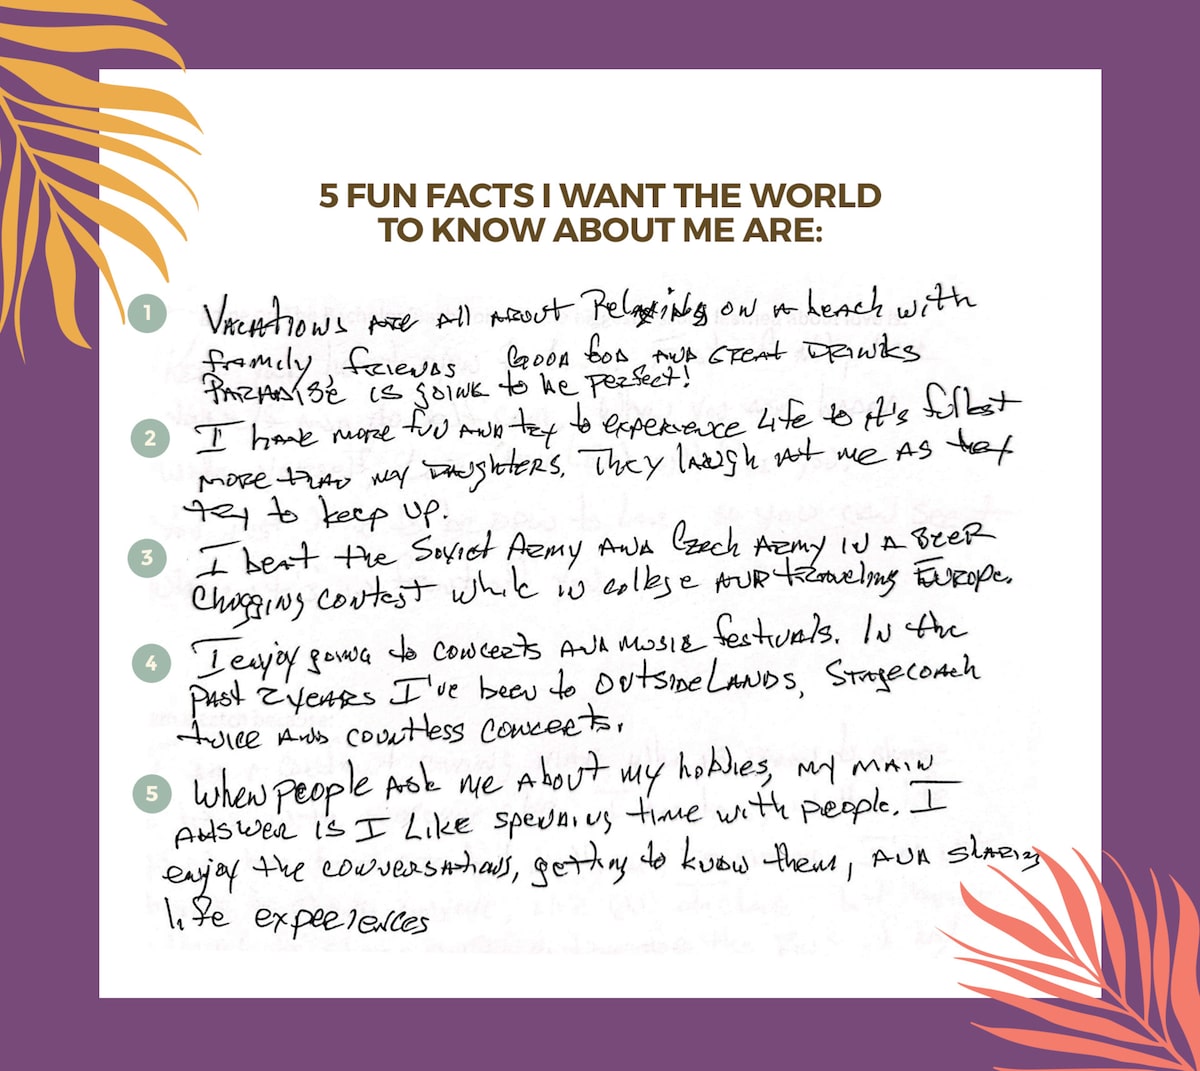 5 FUN FACTS I WANT THE WORLD
TO KNOW ABOUT ME ARE:
1 Vacations are all about Relaxing on a beach with
family, friends Good food and great drinks
Paradise is going to be perfect!
2 I have more fun and try to experience life to it's fullest
more than my daughters. They laugh at me as they
try to keep up.
3 I beat the Soviet Army and Czech Army in a beer
chugging contest while in college and traveling Europe.
4 I enjoy going to concerts and music festivals. In the
past 2 years I've been to OutsideLands, Stagecoach
twice and countless concerts.
5 When people ask me about my hobbies, my main
answer is I like spending time with people. I
enjoy the conversations, getting to know them, and sharing
life experiences